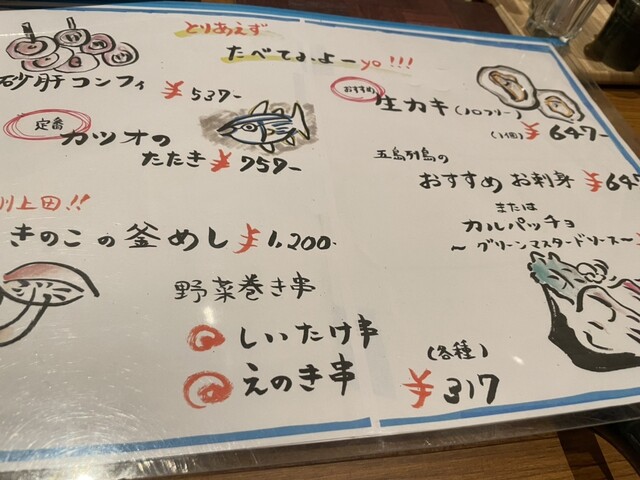 とりあえず
たべてみよーyo!!!
砂肝コンフィ
¥537-
定番
カツオの
たたき ¥759-
川上田!!
きのこの釜めし ¥1,200-
野菜巻き串
しいたけ串
えのき串
(各種)
¥317
おすすめ
生カキ(ノロフリー)
(1個) ¥647-
五島列島の
おすすめお刺身 ¥647
または
カルパッチョ
~グリーンマスタードソース~